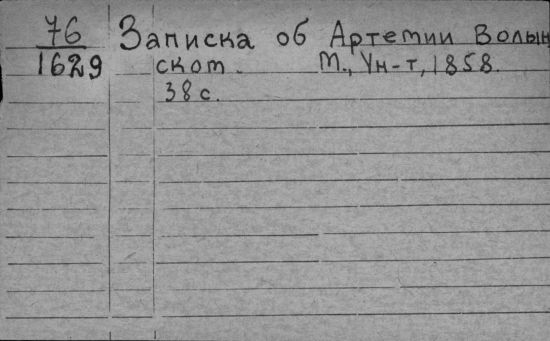 76 Записка об Артемии Волын
1629 ском. М., Ун-т, 1858.
38 с.